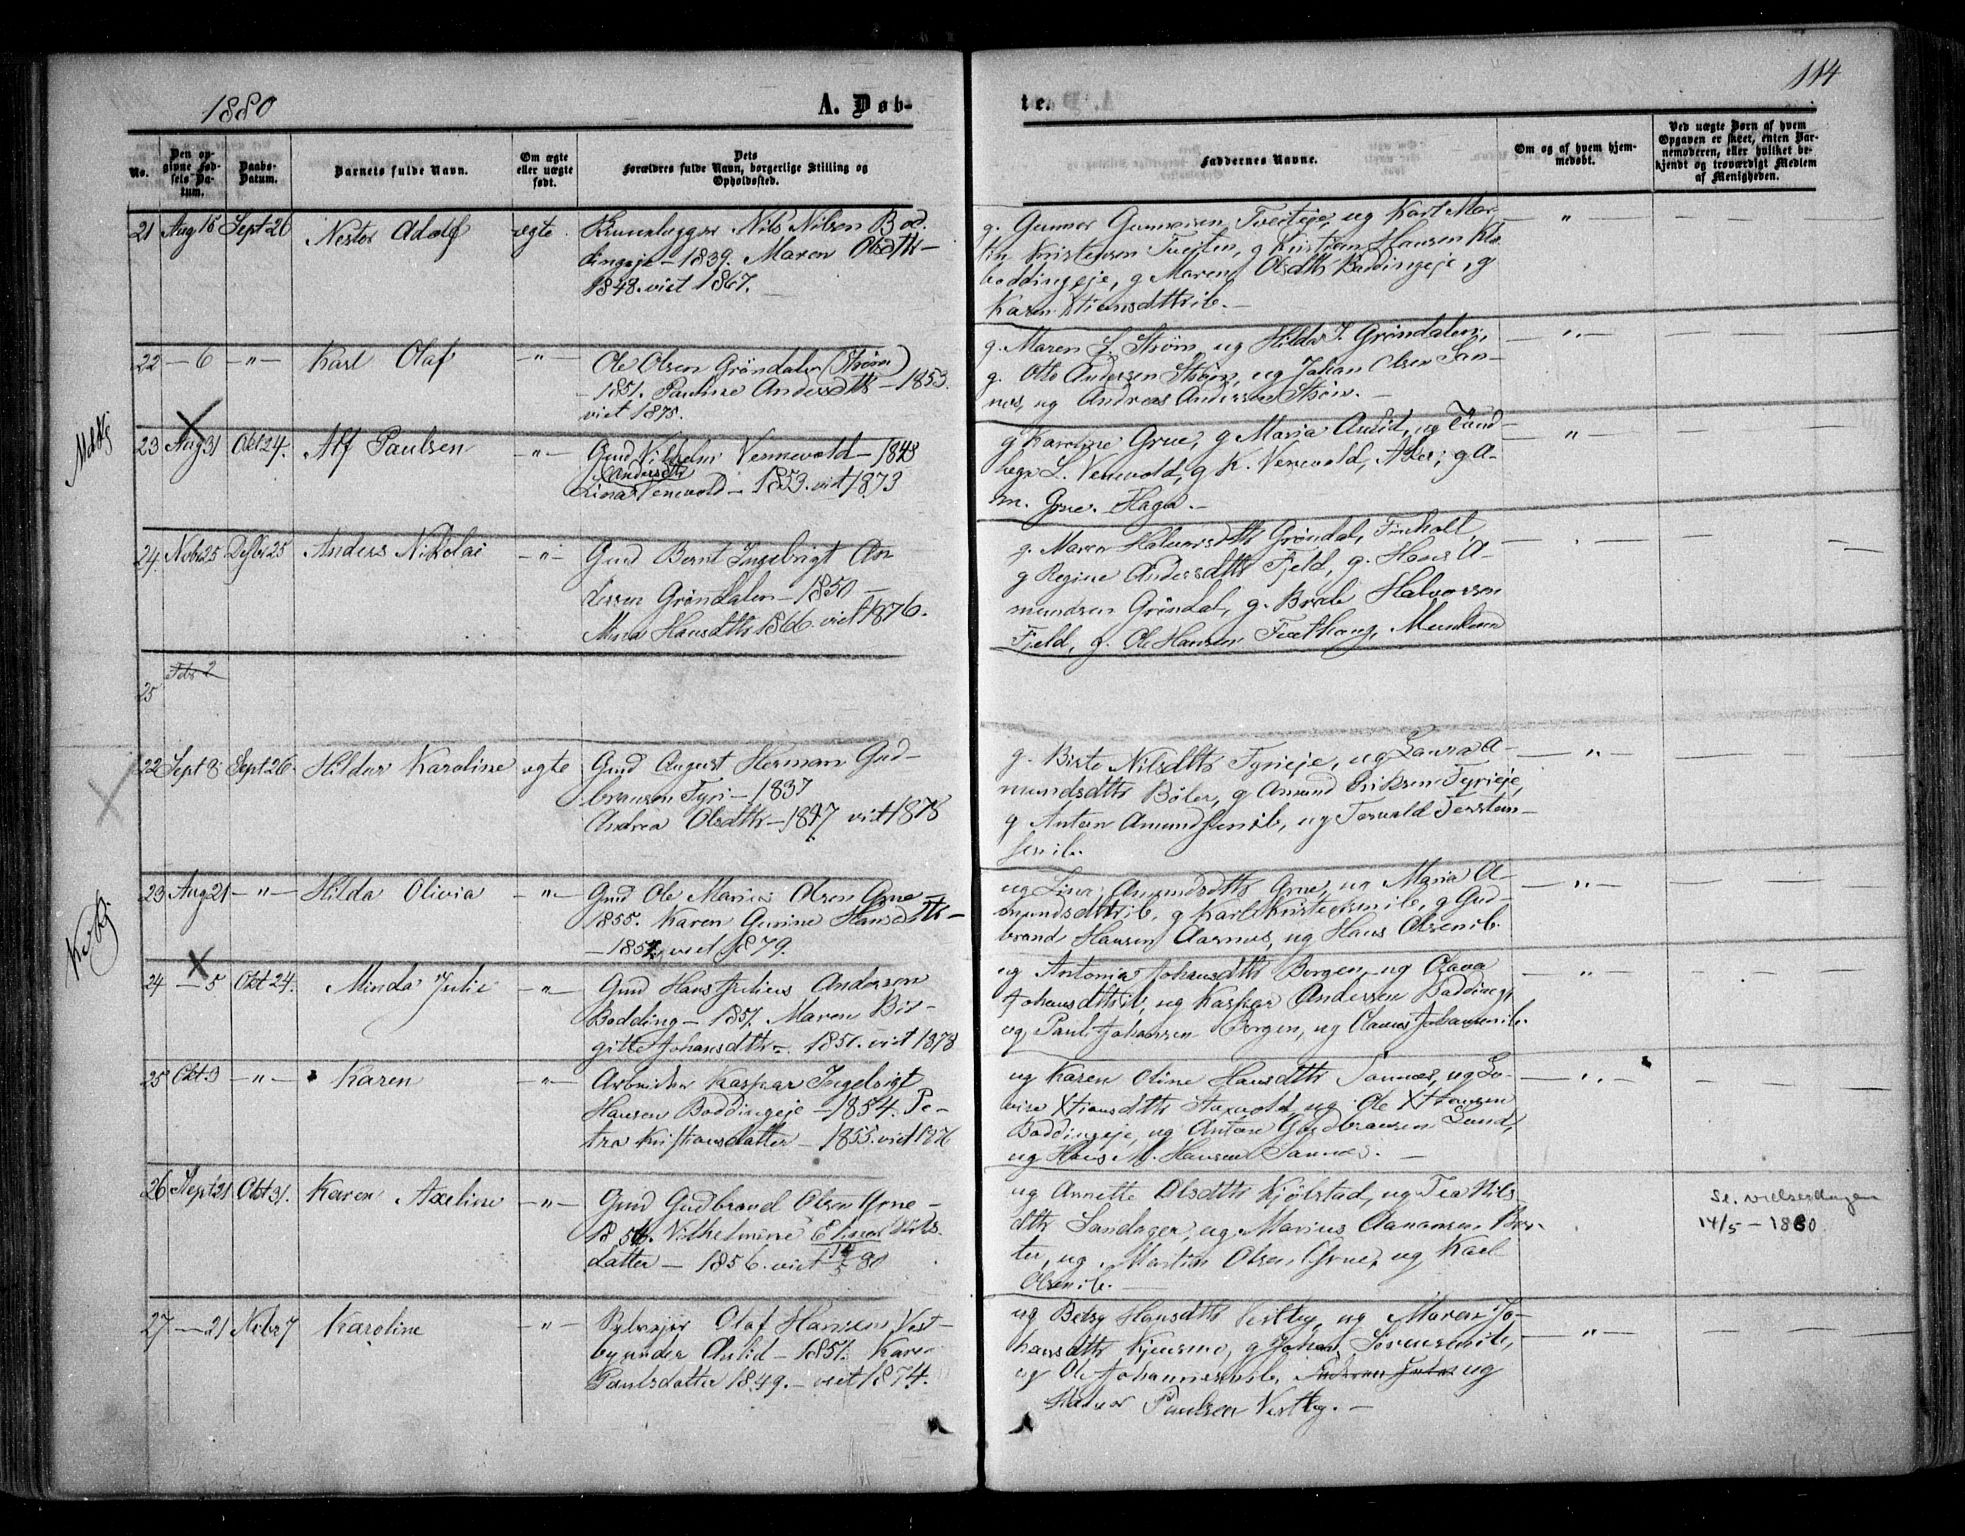 1880
A. Døb-
te.
114
No.
Den op-
givne Fød-
sels Da-
tum.
Daabs-
Datum.
Barnets fulde Navn.
Om ægte
eller uægte
født.
Dets
Forældres fulde Navn, borgerlige Stilling og
Opholdssted.
Faddernes Navne.
Om og af hvem hjem-
medøbt.
Ved uægte Børn af hvem
Opgaven er skeet, enten Bar-
nemoderen, eller hvilket be-
kjendt og troværdigt Medlem
af Menigheden.
21 Aug 15 Sept 26 Nestor Adolf ægte
Nils Nilsen Bod-
dingeje - 1839. Maren Olsdttr -
1848. viet 1867.
g. Gunnar Gunnarsen, ug Karl Mar-
tin Kristensen Tveiten, g Kristian Hansen
boddingeje, g Maren Olsdttr Boddingeje, g
Karen Xtiansdttr ib. -
22 - 6 - " - Karl Olaf - " -
Ole Olsen Grøndalen (Strøm)
- 1851. Pauline Andersdttr - 1853.
viet 1875.
g. Maren L. Strøm, ug Hilda J. Grøndalen,
g. Otto Andersen Strøm, ug Johan Olsen San-
nes, ug Andreas Andersen Strøm. -
23 Aug 31 Okt 24. Alf Paulsen - " -
Gmd Vilhelm Vennevold - 1843
Andersdttr
Lina Venevold - 1853. viet 1873
g Karoline Grue, g Maria Aulid, ug
L. Venevold, g K. Venevold, Aker, g A-
m. Grue. Haga. -
24. Nvbr 25 Dsbr 25 Anders Nikolai - " -
Gmd Bernt Ingebrigt An-
dersen Grøndalen - 1850 -
Mina Hansdttr 1866. viet 1876.
g. Maren Halvorsdttr Grøndal, Finholt,
g Regine Andersdttr Fjeld, g. Hans A-
mundsen Grøndal, g. Brede Halvorsen
Fjeld, g. Ole Hansen
25
Febr 2
22 Sept 8 Sept 26 Hildur Karoline ægte
Gmd August Herman Gud-
bransen Tyri - 1837
Andrea Olsdttr - 1847 viet 1875
g. Birte Nilsdttr Tyrieje, ug Laura A-
mundsdttr Bøler, g Amund Eriksen Tyrieje,
g Anton Amundsen ib, ug Torvald Torsten-
sen ib.
23 Aug 21 - " - Hilda Olivia - " -
Gmd Ole Marius Olsen Grue -
1855. Karen Gunine Hansdttr -
- 1857, viet 1879.
ug Lina Amundsdttr Grue, ug Maria A-
mundsdttr ib, g Karl Kristensen ib, g Gud-
brand Hansen Aasmus, ug Hans Olsen ib.
24 - 5 Okt 24. Minda Julie - " -
Gmd Hans Julius Andersen
Bodding - 1851. Maren Bir-
gitte Johansdttr - 1851. viet 1878
ug Antonia Johansdttr Borgen, ug Olava
Johansdttr ib, ug Kaspar Andersen Bodding,
ug Paul Johansen Borgen, ug Olaus Johansen ib.
25 Okt. 3 - " - Karen - " -
Arbeider Kaspar Ingebrigt
Hansen Boddingeje - 1854. Pe-
tra Kristiansdatter - 1855. viet 1876
ug Karen Oline Hansdttr Sannes, ug Lo-
vise Xtiansdttr, ug Ole Xtiansen
Boddingeje, ug Anton Gudbransen Sand,
ug Hans M. Hansen Sannes. -
26 Sept 21 Okt 31. Karen Axeline - " -
Gmd Gudbrand Olsen Grue -
1856. Vilhelmine Elinor Nils-
datter - 1856. viet 14/5 80
ug Annette Olsdttr Kjølstad, ug Tea Nils-
dttr Sandager, ug Marius
ug Martin Olsen Grue, ug Karl
Olsen ib. -
Se. vielsesdagen
14/5 - 1880.
27 - 21 Nvbr 7 Karoline - " -
Olaf Hansen Vest-
by under Aulid - 1851.
Paulsdatter 1849. - viet 1874.
ug Betsy Hansdttr Vestby, ug Maren Jo-
hansdttr, g Johan Sørensen ib,
ug Ole Johannesen ib, ug
Halvor Paulsen Vestby. -